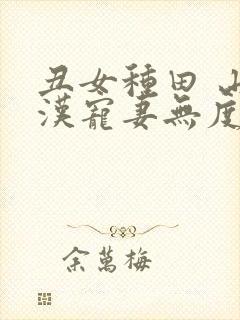 丑女種田 山
漢寵妻無度
余萬梅